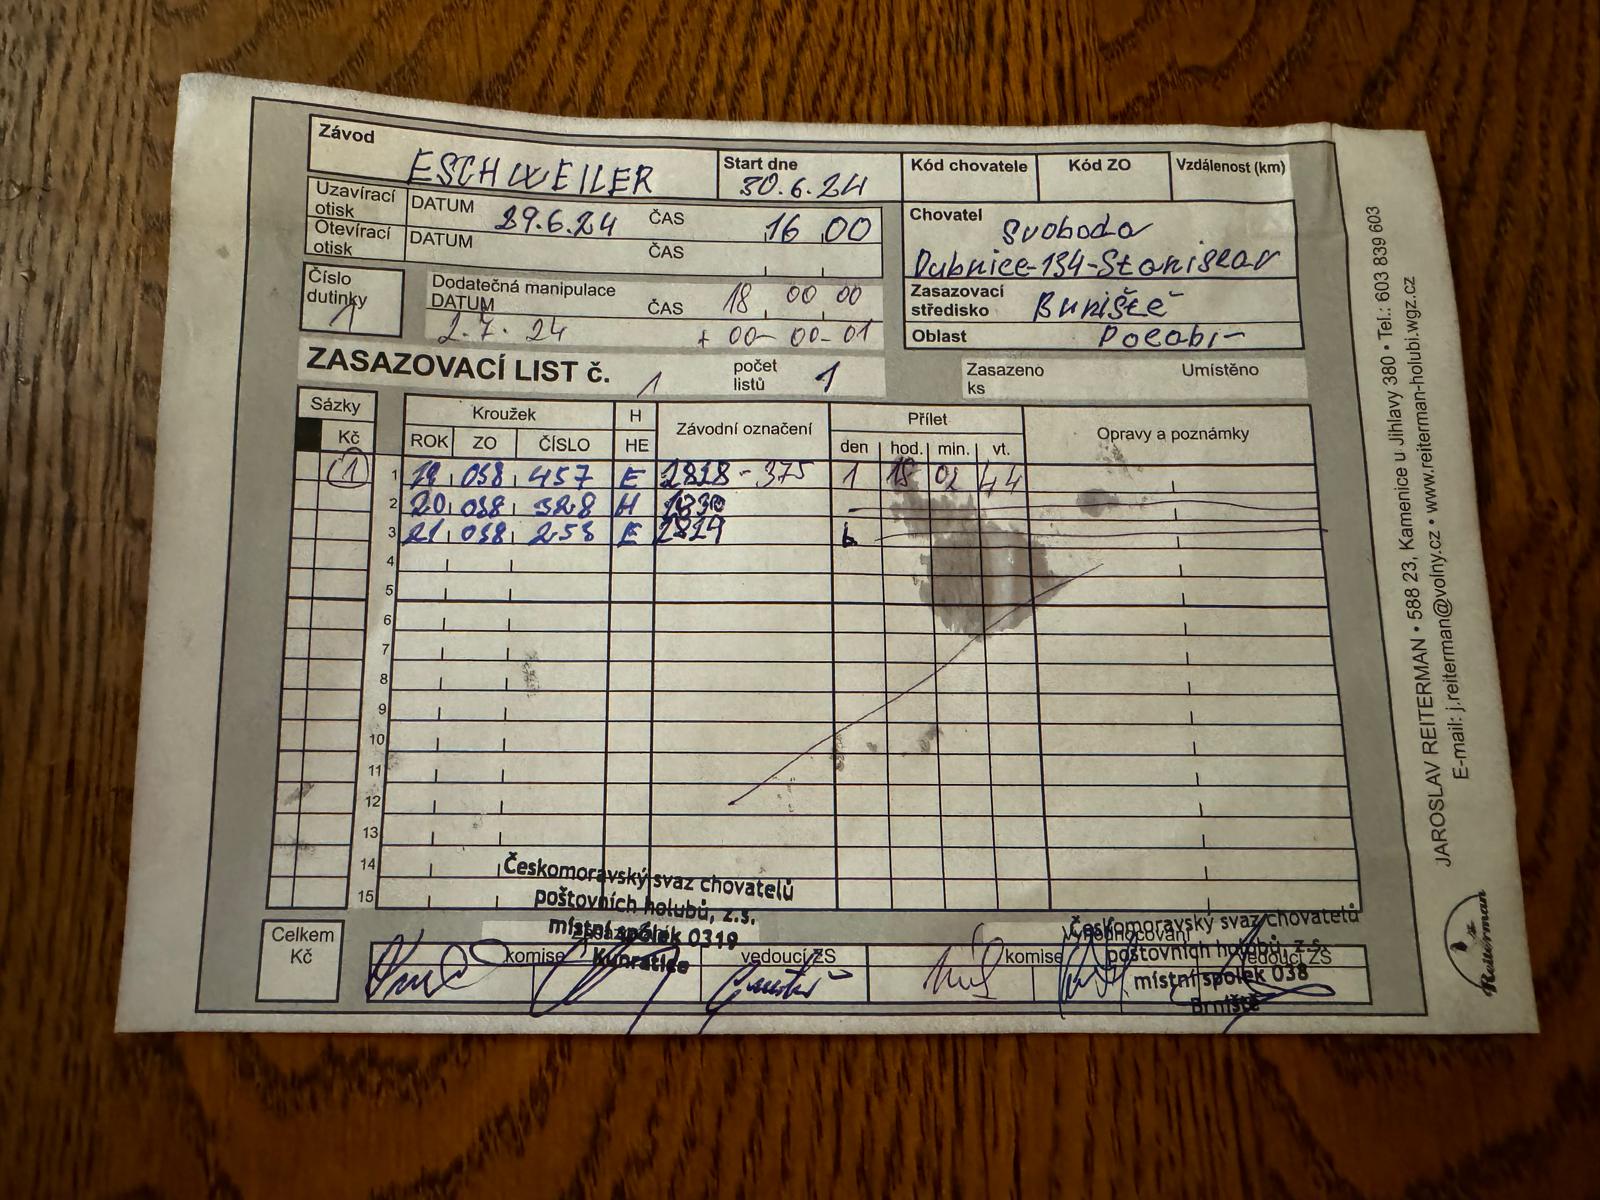 Závod ESCHWEILER Start dne 30.6.24 Kód chovatele Kód ZO Vzdálenost (km)
Uzavírací otisk DATUM 29.6.24 ČAS 16 00
Otevírací otisk DATUM ČAS
Chovatel Svoboda
Dubnice-134-Stanislav
Číslo dutinky 1
Dodatečná manipulace
DATUM 2.7.24 ČAS 18 00 00
+ 00-00-01
Zasazovací středisko Brniště
Oblast Polabí
ZASAZOVACÍ LIST č. 1 počet listů 1 Zasazeno ks Umístěno
Sázky Kroužek H Závodní označení Přílet Opravy a poznámky
Kč ROK ZO ČÍSLO HE den hod. min. vt.
1 1 19 038 457 E 2828-375 1 02 44
2 20 038 328 H
3 21 038 253 E
4
5
6
7
8
9
10
11
12
13
14
15
Českomoravský svaz chovatelů
poštovních holubů, z.s.
místní spolek 0319
Kunratice
Českomoravský svaz chovatelů
poštovních holubů, z.s.
místní spolek 038
Brniště
Celkem Kč
komise vedoucí ZS komise vedoucí ZS
JAROSLAV REITERMAN • 588 23, Kamenice u Jihlavy 380 • Tel.: 603 839 603
E-mail: j.reiterman@volny.cz • www.reiterman-holubi.wgz.cz
Reiterman